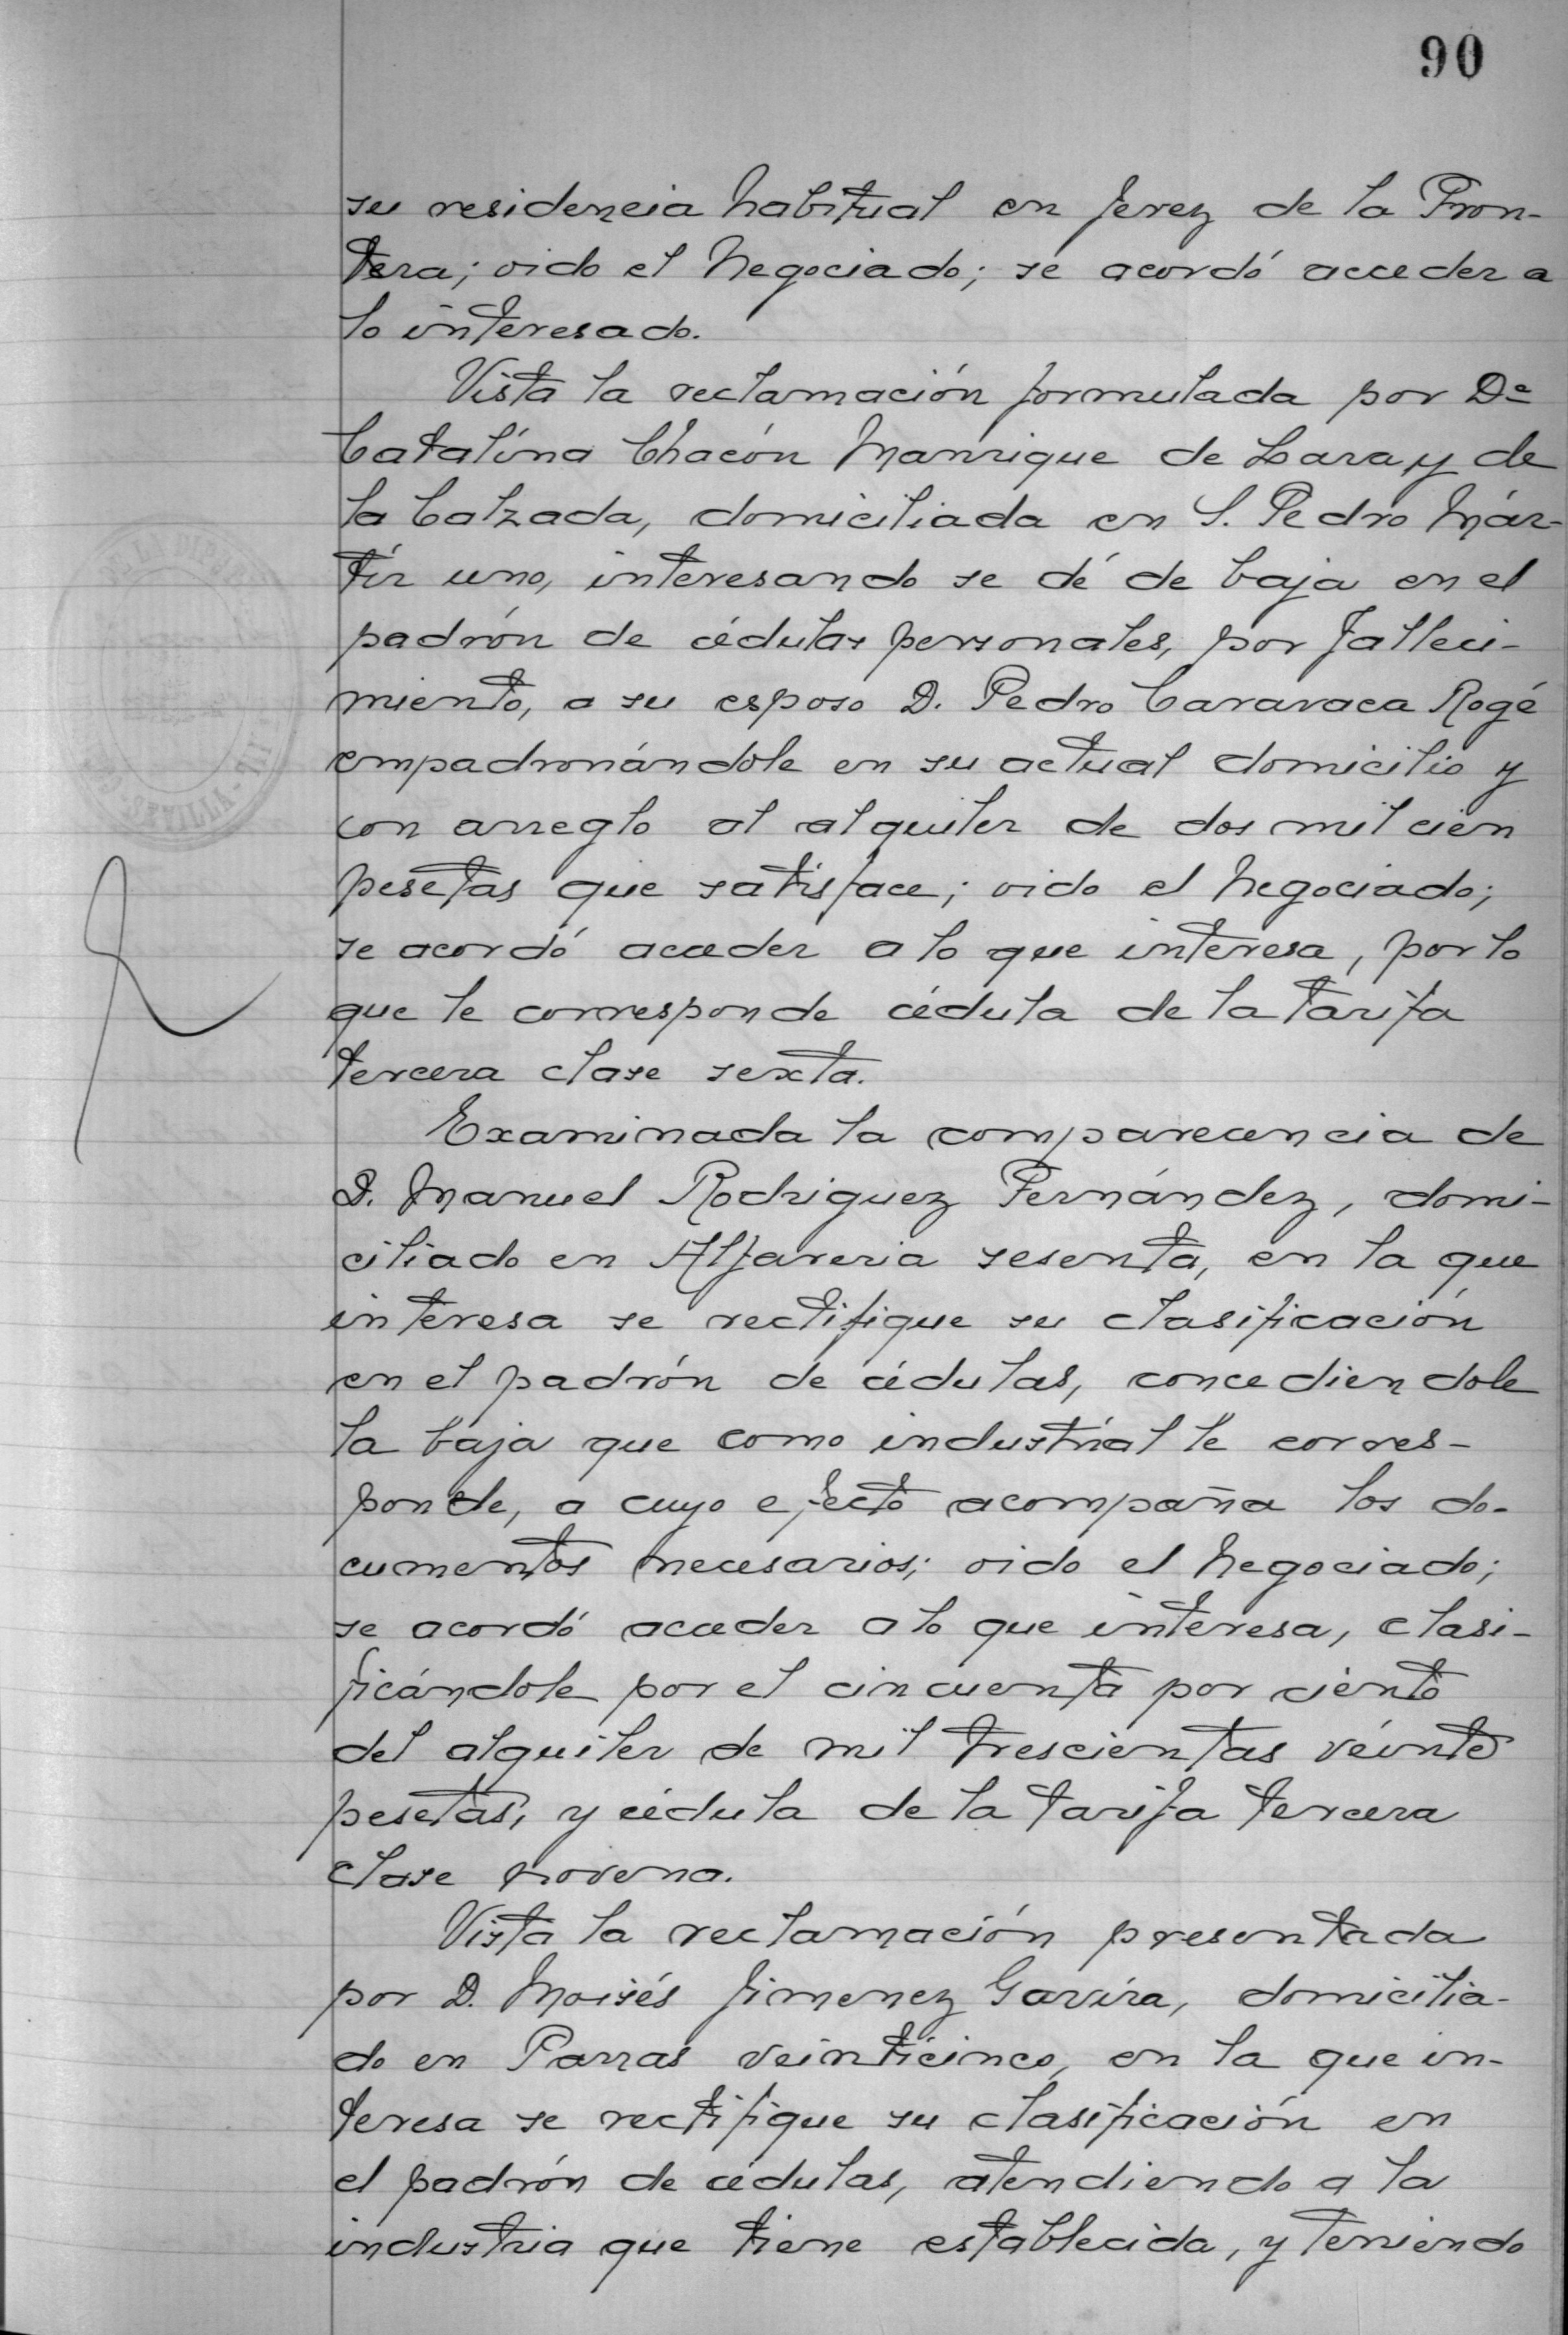 90
su residencia habitual en Jerez de la Fron-
tera; oido el Negociado; se acordó acceder a
lo interesado.
Vista la reclamación formulada por Dª
Catalina Chacón Manrique de Lara y de
la Calzada, domiciliada en S. Pedro Már-
tir uno, interesando se dé de baja en el
padrón de cédulas personales, por falleci-
miento, a su esposo D. Pedro Caravaca Rogé
empadronándole en su actual domicilio y
con arreglo al alquiler de dos mil cien
pesetas que satisface; oido el Negociado;
se acordó acceder a lo que interesa, por lo
que le corresponde cédula de la tarifa
tercera clase sexta.
Examinada la comparecencia de
D. Manuel Rodriguez Fernández, domi-
ciliado en Alfareria sesenta, en la que
interesa se rectifique su clasificación
en el padrón de cédulas, concediendole
la baja que como industrial le corres-
ponde, a cuyo efecto acompaña los do-
cumentos necesarios; oido el Negociado;
se acordó acceder a lo que interesa, clasi-
ficándole por el cincuenta por ciento
del alquiler de mil trescientas veinte
pesetas, y cédula de la tarifa tercera
clase novena.
Vista la reclamación presentada
por D. Moisés Jimenez Gavira, domicilia-
do en Parras veinticinco, en la que in-
teresa se rectifique su clasificación en
el padrón de cédulas, atendiendo a la
industria que tiene establecida, y teniendo